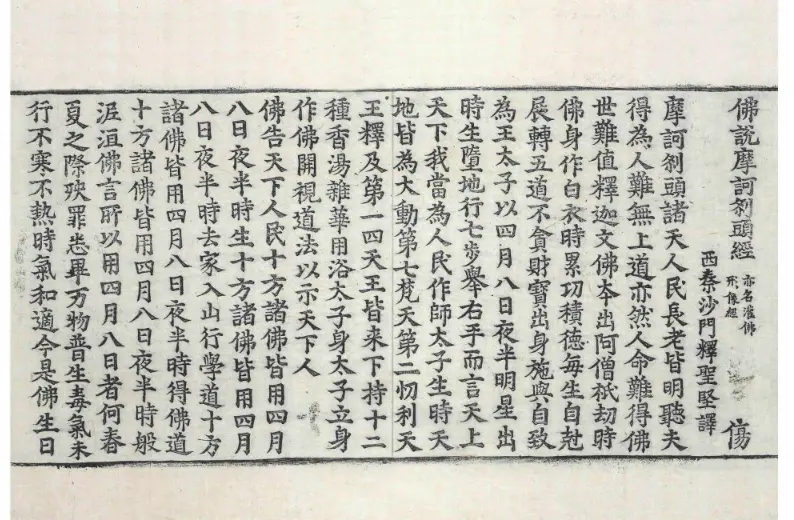 佛說摩訶刹頭經 亦名灌佛形像經 傷
西秦沙門釋聖堅譯
摩訶刹頭諸天人民長老皆明聽夫
得為人難無上道亦然人命難得佛
世難值釋迦文佛夲出阿僧祇劫時
佛身作白衣時累功積德每生自尅
展轉五道不貪財寶出身施與自致
為王太子以四月八日夜半明星出
時生墮地行七步舉右手而言天上
天下我當為人民作師太子生時天
地皆為大動第七梵天第二忉利天
王釋及第一四天王皆来下持十二
種香湯雜華用浴太子身太子立身
作佛開視道法以示天下人
佛告天下人民十方諸佛皆用四月
八日夜半時生十方諸佛皆用四月
八日夜半時去家入山行學道十方
諸佛皆用四月八日夜半時得佛道
十方諸佛皆用四月八日夜半時般
泥洹佛言所以用四月八日者何春
夏之際殃罪悉畢万物普生毒氣未
行不寒不熱時氣和適今是佛生日